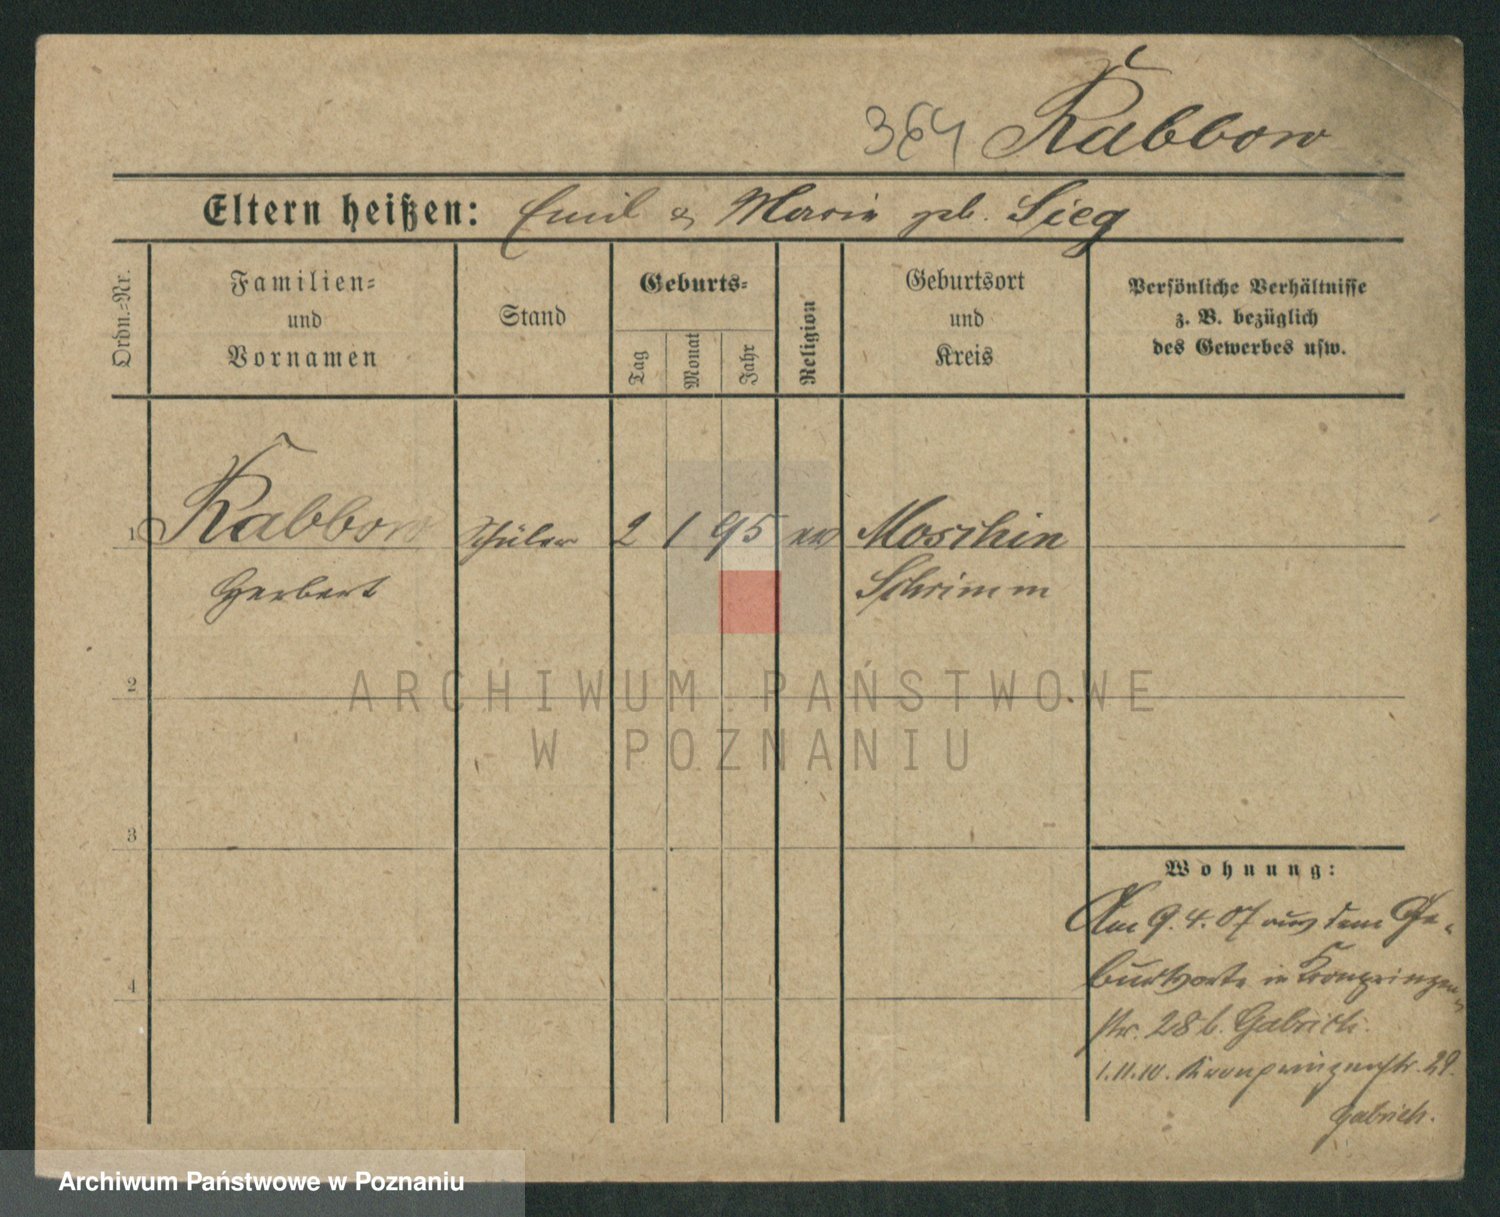 364 Rabbow
Eltern heißen: Emil & Marie geb. Sieg
Ordn.-Nr.
Familien-
und
Vornamen
Stand
Geburts-
Tag
Monat
Jahr
Religion
Geburtsort
und
Kreis
Persönliche Verhältnisse
z. B. bezüglich
des Gewerbes usw.
1 Rabbow Schüler 2 1 95 ev Moschin
Herbert Schrimm
2
ARCHIWUM PAŃSTWOWE
W POZNANIU
3
Wohnung:
Am 9.4.07 aus dem Ge-
burtsorte in Kronprinzen-
str. 28 b. Gabrich.
4
1.11.10. Kronprinzenstr. 29.
Gabrich.
Archiwum Państwowe w Poznaniu